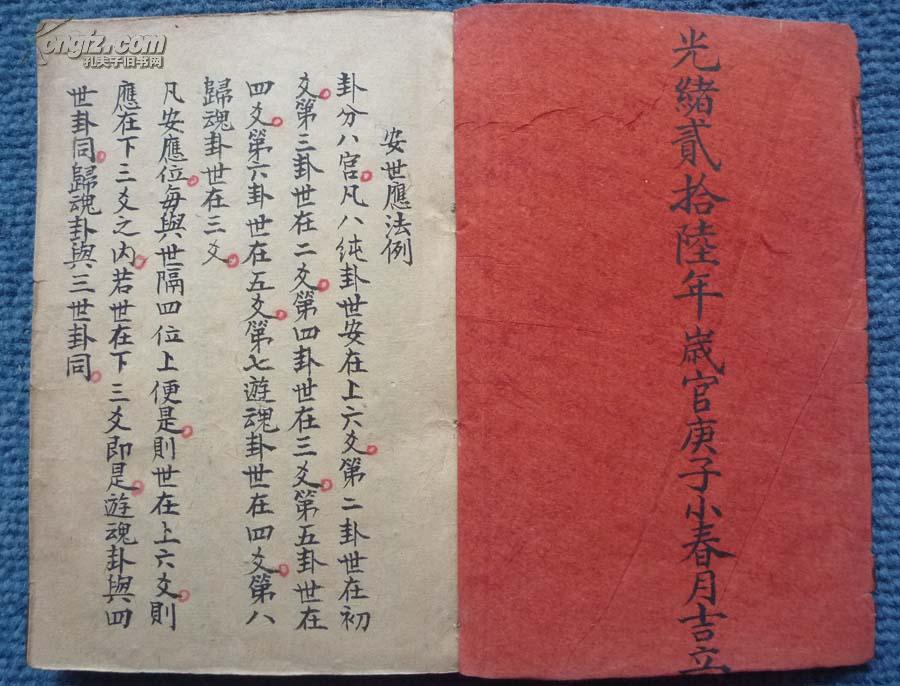 光緒貳拾陸年歲官庚子小春月吉立
安世應法例
卦分八宮凡八純卦世安在上六爻第二卦世在初
爻第三卦世在二爻第四卦世在三爻第五卦世在
四爻第六卦世在五爻第七遊魂卦世在四爻第八
歸魂卦世在三爻
凡安應位每與世隔四位上便是則世在上六爻則
應在下三爻之內若世在下三爻即是遊魂卦與四
世卦同歸魂卦與三世卦同
孔夫子旧书网